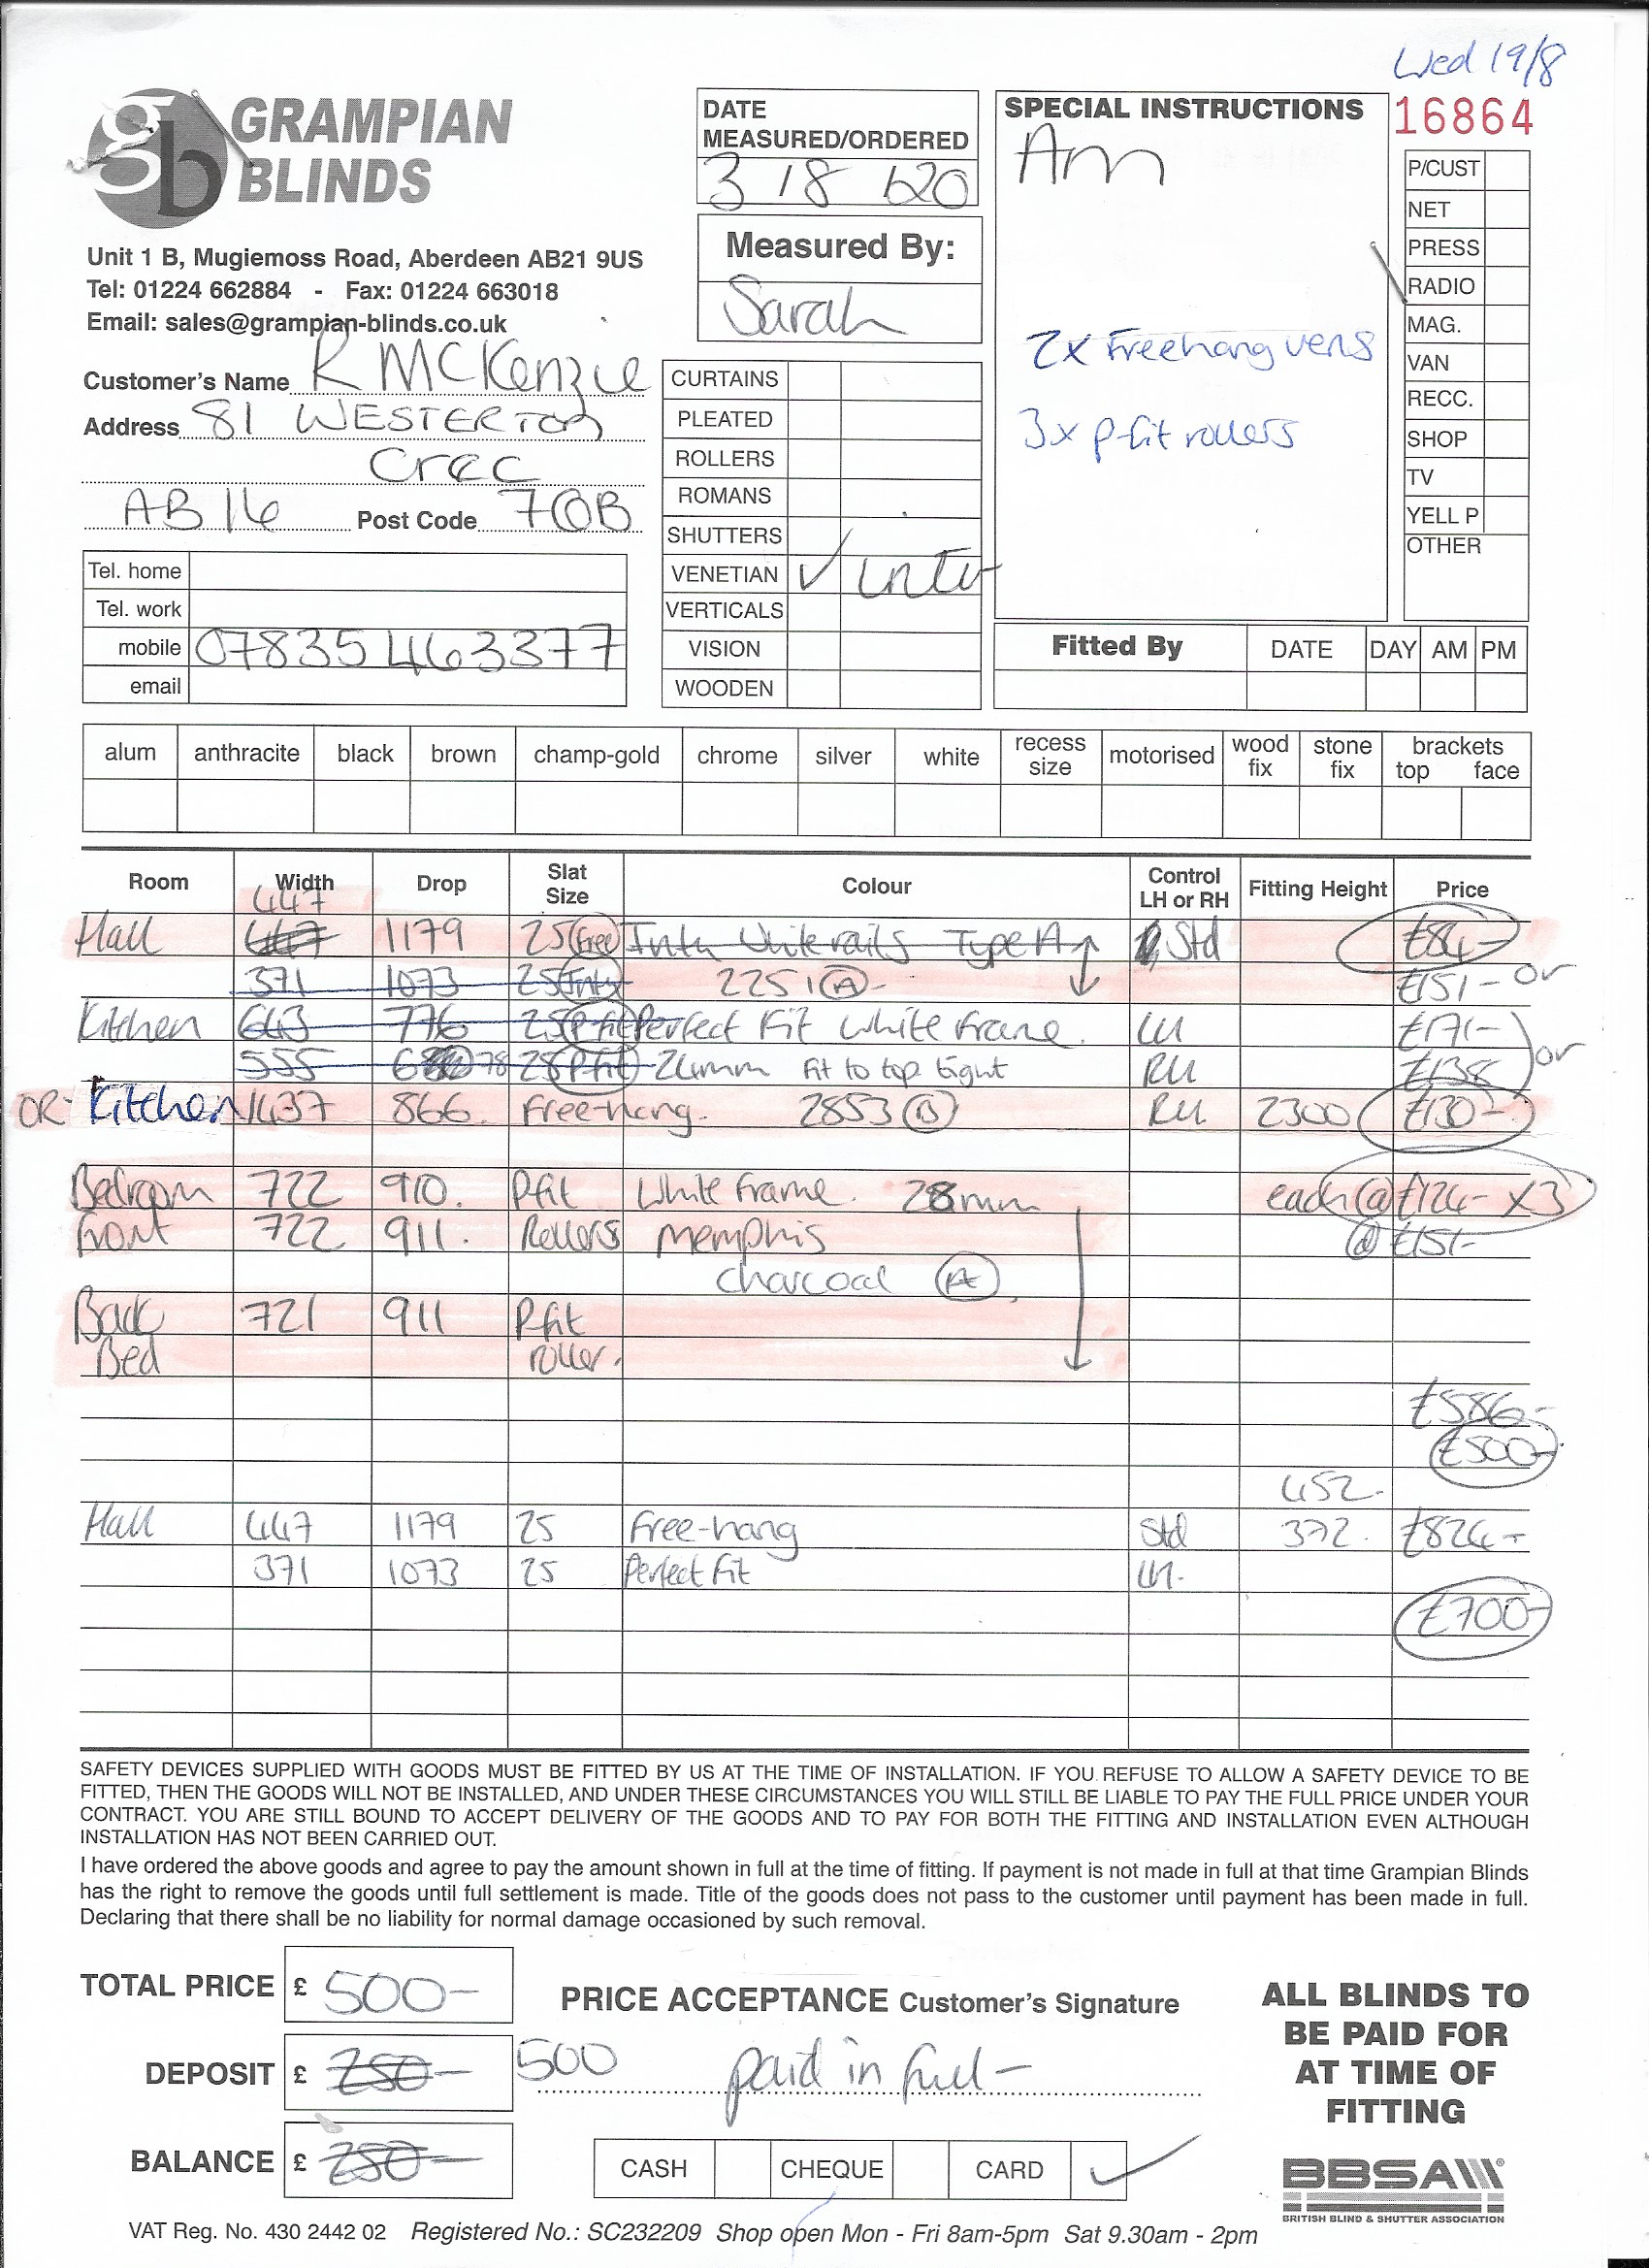 Wed 19/8
gb GRAMPIAN BLINDS
Unit 1 B, Mugiemoss Road, Aberdeen AB21 9US
Tel: 01224 662884 - Fax: 01224 663018
Email: sales@grampian-blinds.co.uk
DATE MEASURED/ORDERED
3 / 8 / 20
Measured By:
Sarah
SPECIAL INSTRUCTIONS
Am
2x Freehang vens
3x p-fit rollers
16864
P/CUST
NET
PRESS
RADIO
MAG.
VAN
RECC.
SHOP
TV
YELL P
OTHER
Customer's Name R McKenzie
Address 81 WESTERTON
Cres
AB16 Post Code 7QB
Tel. home
Tel. work
mobile 07835 463377
email
CURTAINS
PLEATED
ROLLERS
ROMANS
SHUTTERS
VENETIAN ✓ Intu
VERTICALS
VISION
WOODEN
Fitted By DATE DAY AM PM
alum anthracite black brown champ-gold chrome silver white recess size motorised wood fix stone fix brackets top face
Room Width Drop Slat Size Colour Control LH or RH Fitting Height Price
447
Hall 447 1179 25 Free Intu White rails Type A Std £84-
371 1073 25 Intu 2251 A - £151- or
Kitchen 643 776 25 P-fit Perfect Fit White frame. LH £171-
555 78 25 P-fit - 24mm fit to top tight RH £138 or
OR- Kitchen 1437 866 Free-hang. 2853 B RH 2300 £130-
Bedroom 722 910. Pfit White frame. 28mm each @ £124- x3
Front 722 911. Rollers Memphis @ £151-
charcoal A
Back 721 911 Pfit
Bed roller.
£586-
£500-
452-
Hall 447 1179 25 Free-hang Std 372. £824-
371 1073 25 Perfect Fit LH-
£700-
SAFETY DEVICES SUPPLIED WITH GOODS MUST BE FITTED BY US AT THE TIME OF INSTALLATION. IF YOU REFUSE TO ALLOW A SAFETY DEVICE TO BE
FITTED, THEN THE GOODS WILL NOT BE INSTALLED, AND UNDER THESE CIRCUMSTANCES YOU WILL STILL BE LIABLE TO PAY THE FULL PRICE UNDER YOUR
CONTRACT. YOU ARE STILL BOUND TO ACCEPT DELIVERY OF THE GOODS AND TO PAY FOR BOTH THE FITTING AND INSTALLATION EVEN ALTHOUGH
INSTALLATION HAS NOT BEEN CARRIED OUT.
I have ordered the above goods and agree to pay the amount shown in full at the time of fitting. If payment is not made in full at that time Grampian Blinds
has the right to remove the goods until full settlement is made. Title of the goods does not pass to the customer until payment has been made in full.
Declaring that there shall be no liability for normal damage occasioned by such removal.
TOTAL PRICE £ 500-
DEPOSIT £ 250- 500
BALANCE £ 250-
PRICE ACCEPTANCE Customer's Signature
paid in full -
CASH CHEQUE CARD ✓
ALL BLINDS TO
BE PAID FOR
AT TIME OF
FITTING
BBSA
BRITISH BLIND & SHUTTER ASSOCIATION
VAT Reg. No. 430 2442 02 Registered No.: SC232209 Shop open Mon - Fri 8am-5pm Sat 9.30am - 2pm